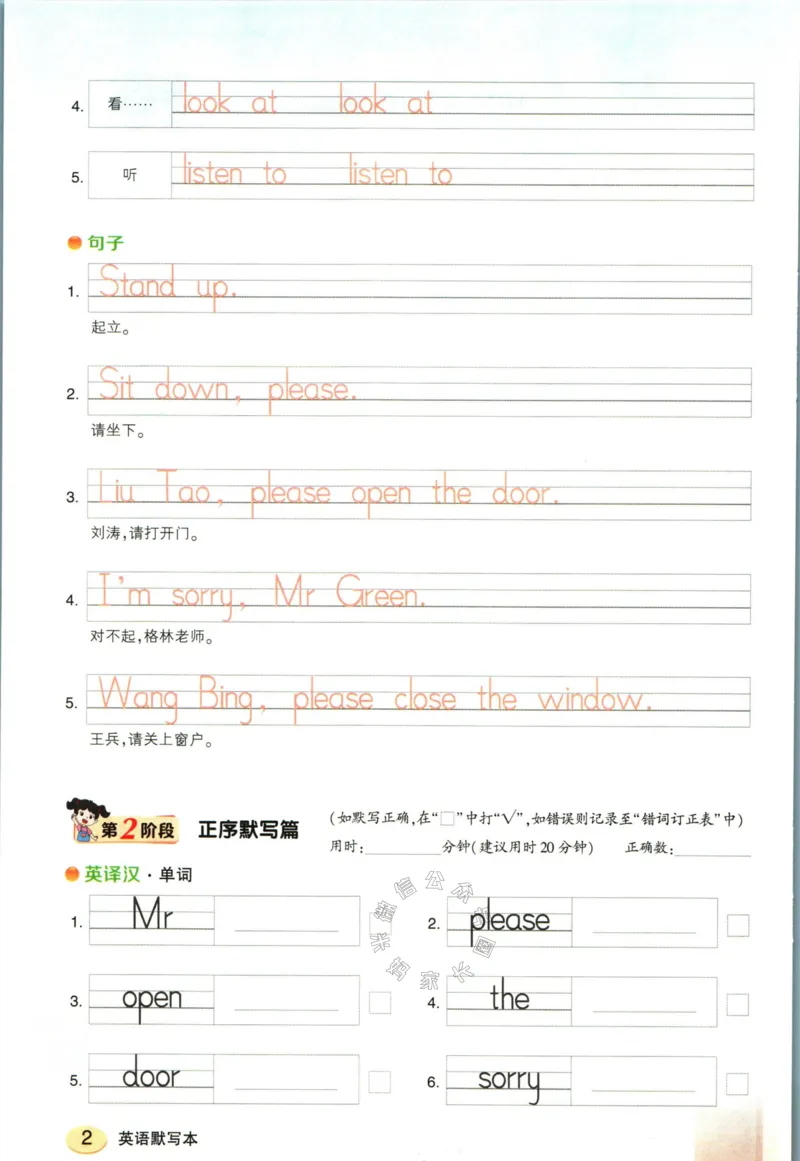 4. 看…… look at look at
5. 听 listen to listen to
句子
1. Stand up.
起立。
2. Sit down, please.
请坐下。
3. Liu Tao, please open the door.
刘涛,请打开门。
4. I'm sorry, Mr Green.
对不起,格林老师。
5. Wang Bing, please close the window.
王兵,请关上窗户。
第2阶段 正序默写篇 (如默写正确,在“□”中打“√”,如错误则记录至“错词订正表”中)
用时: 分钟(建议用时20分钟) 正确数:
英译汉·单词
1. Mr 2. please
3. open 4. the
5. door 6. sorry
2 英语默写本